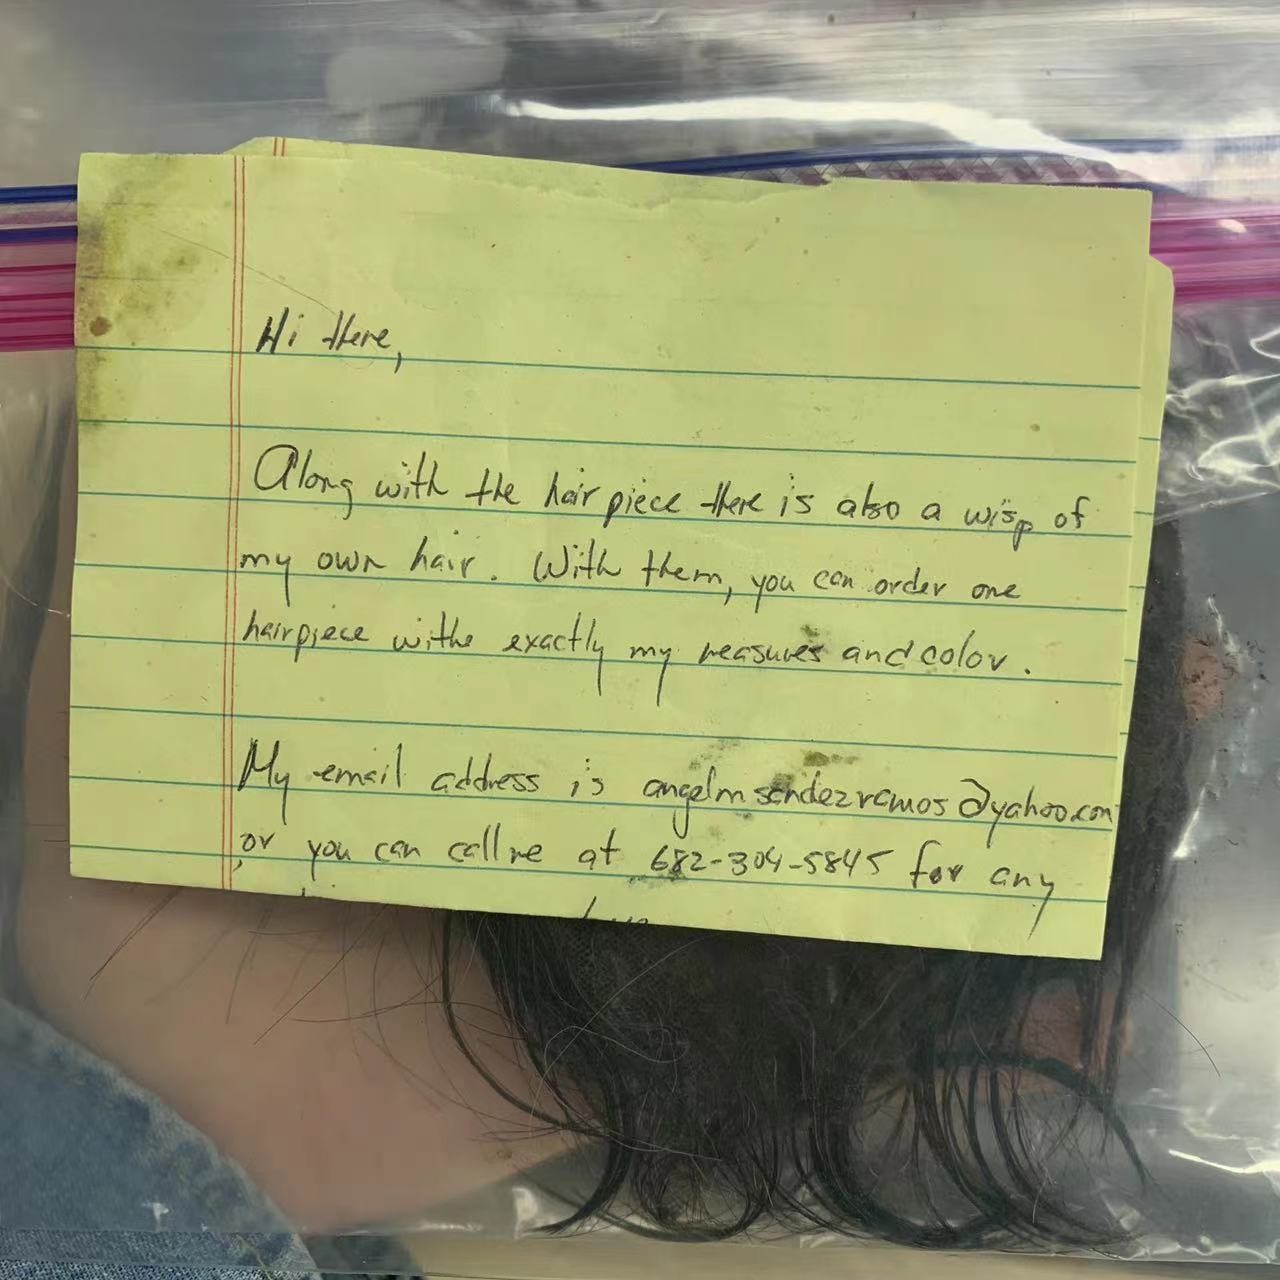 Hi there,
Along with the hair piece there is also a wisp of
my own hair. With them, you can order one
hairpiece withe exactly my measures and color.
My email address is angelmsendezramos@yahoo.com
or you can call me at 682-304-5845 for any